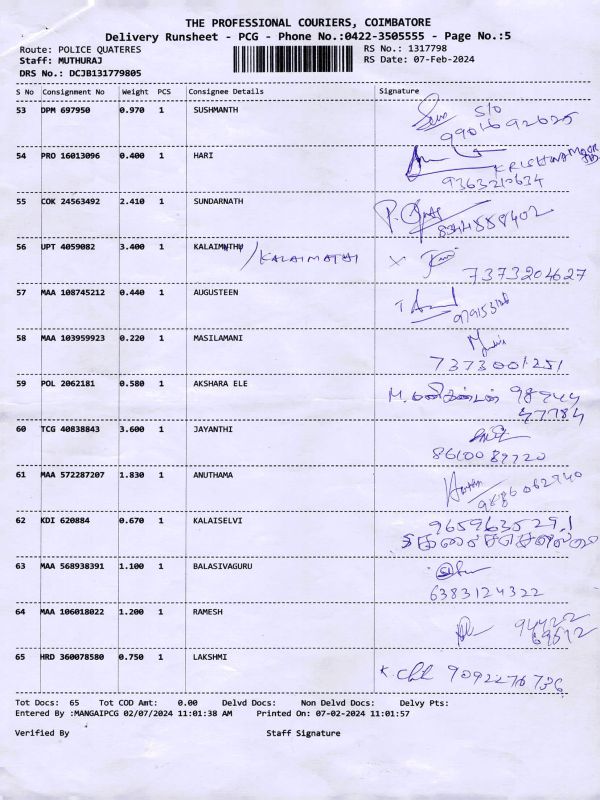 THE PROFESSIONAL COURIERS, COIMBATORE
Delivery Runsheet - PCG - Phone No.:0422-3505555 - Page No.:5
Route: POLICE QUATERES RS No.: 1317798
Staff: MUTHURAJ RS Date: 07-Feb-2024
DRS No.: DCJB131779805
S No Consignment No Weight PCS Consignee Details Signature
53 DPM 697950 0.970 1 SUSHMANTH S/O
9901692625
54 PRO 16013096 0.400 1 HARI
9363210634
55 COK 24563492 2.410 1 SUNDARNATH
8344558402
56 UPT 4059082 3.400 1 KALAIMATHY / KALAIMATHI
7373204627
57 MAA 108745212 0.440 1 AUGUSTEEN
58 MAA 103959923 0.220 1 MASILAMANI
7373001251
59 POL 2062181 0.580 1 AKSHARA ELE M. மணிகண்டன் 98944
47784
60 TCG 40838843 3.600 1 JAYANTHI
8610089720
61 MAA 572287207 1.830 1 ANUTHAMA
9486062740
62 KDI 620884 0.670 1 KALAISELVI 9659635291
63 MAA 568938391 1.100 1 BALASIVAGURU
6383124322
64 MAA 106018022 1.200 1 RAMESH 94422
69512
65 HRD 360078580 0.750 1 LAKSHMI 9092276736
Tot Docs: 65 Tot COD Amt: 0.00 Delvd Docs: Non Delvd Docs: Delvy Pts:
Entered By :MANGAIPCG 02/07/2024 11:01:38 AM Printed On: 07-02-2024 11:01:57
Verified By Staff Signature